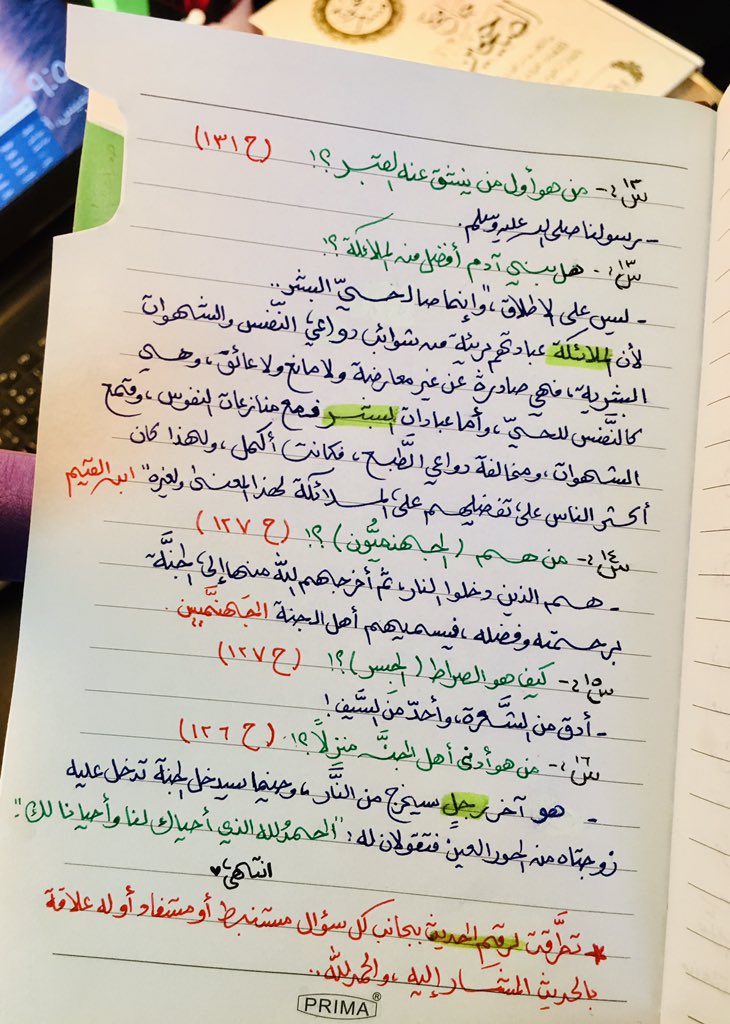 س١٢؛- من هو أول من ينشق عنه القبر؟! (ح ١٣١)
- رسولنا صلى الله عليه وسلم.
س١٣؛- هل بني آدم أفضل من الملائكة؟!
- ليس على الإطلاق، "وإنما صالحيّ البشر..
لأن الملائكة عبادتهم بريئة من شوائب دواعي النَّفس والشهوات
البشرية، فهي صادرة عن غير معارضة ولا مانع ولا عائق، وهي
كالنَّفس للحيّ، وأما عبادات البشر فمع منازعات النفوس، وقمع
الشهوات، ومخالفة دواعي الطَّبع، فكانت أكمل، ولهذا كان
أكثر الناس على تفضيلهم على الملائكة لهذا المعنى ولغيره" ابن القيم
س١٤؛- من هم (الجهنميُّون)؟! (ح ١٢٧)
- هم الذين دخلوا النار، ثمَّ أخرجهم اللَّه منها إلى الجنَّة
برحمته وفضله، فيسميهم أهل الجنة الجَهنَّميين.
س١٥؛- كيف هو الصراط (الجسر)؟! (ح ١٢٧)
- أدق من الشَّعرة، وأحدّ من السَّيف!
س١٦؛- من هو أدنى أهل الجنَّة منزلاً؟! (ح ١٢٦)
- هو آخر رجلٍ سيخرج من النَّار، وحينما سيدخل الجنة تدخل عليه
زوجتاه من الحور العين فتقولان له: "الحمدُ لله الذي أحياك لنا وأحيانا لك".
انتهى، ♥
* تطرَّقت لرقم الحديث بجانب كل سؤال مستنبط أو مستفاد أو له علاقة
بالحديث المشار إليه، والحمدلله..
PRIMA®